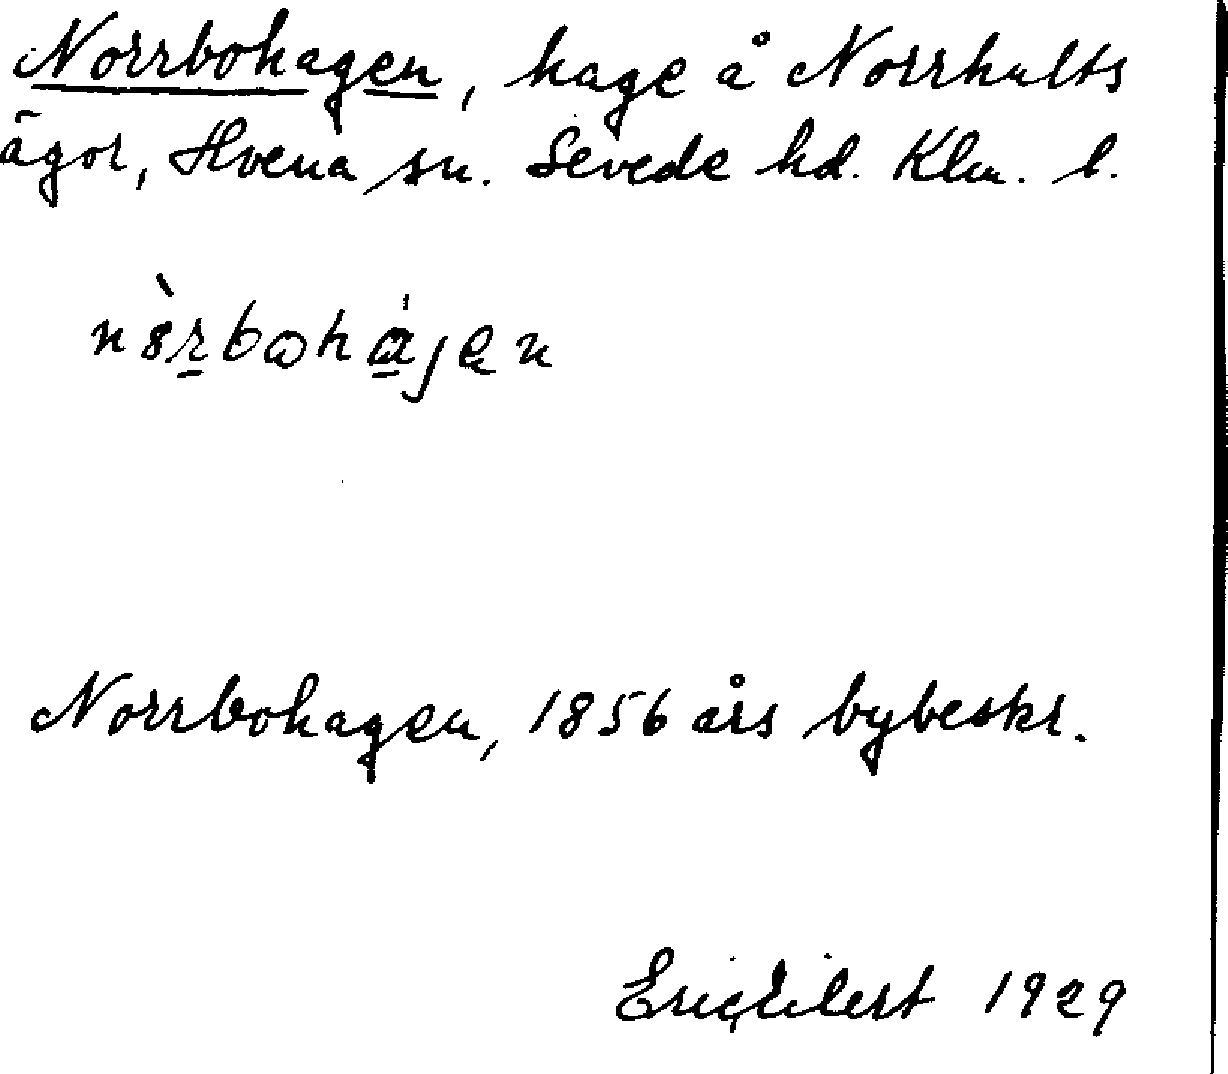 Norrbohagen, hage å Norrhults
ägor, Hvena sn. Sevede hd. Klm. l.
Norrbohagen, 1856 års bybeskr.
1929